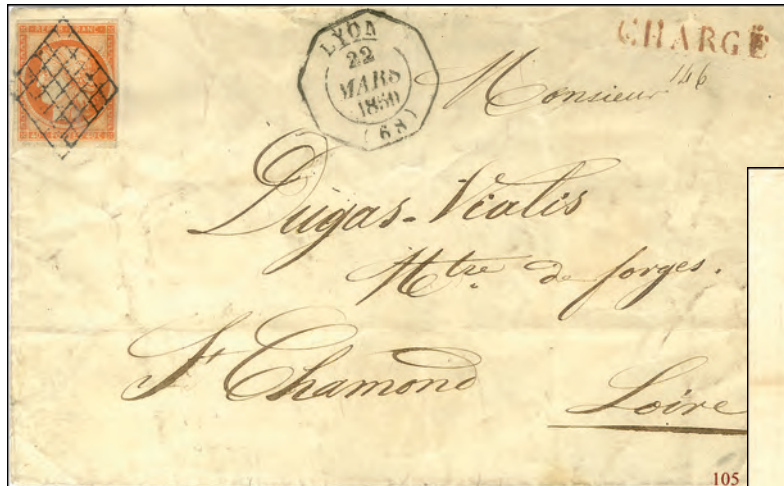 REPUB. FRANC.
LYON
22
MARS
1850
(68)
CHARGÉ
146
Monsieur
Dugas-Vialis
Mtre de forges.
St Chamond
Loire
105